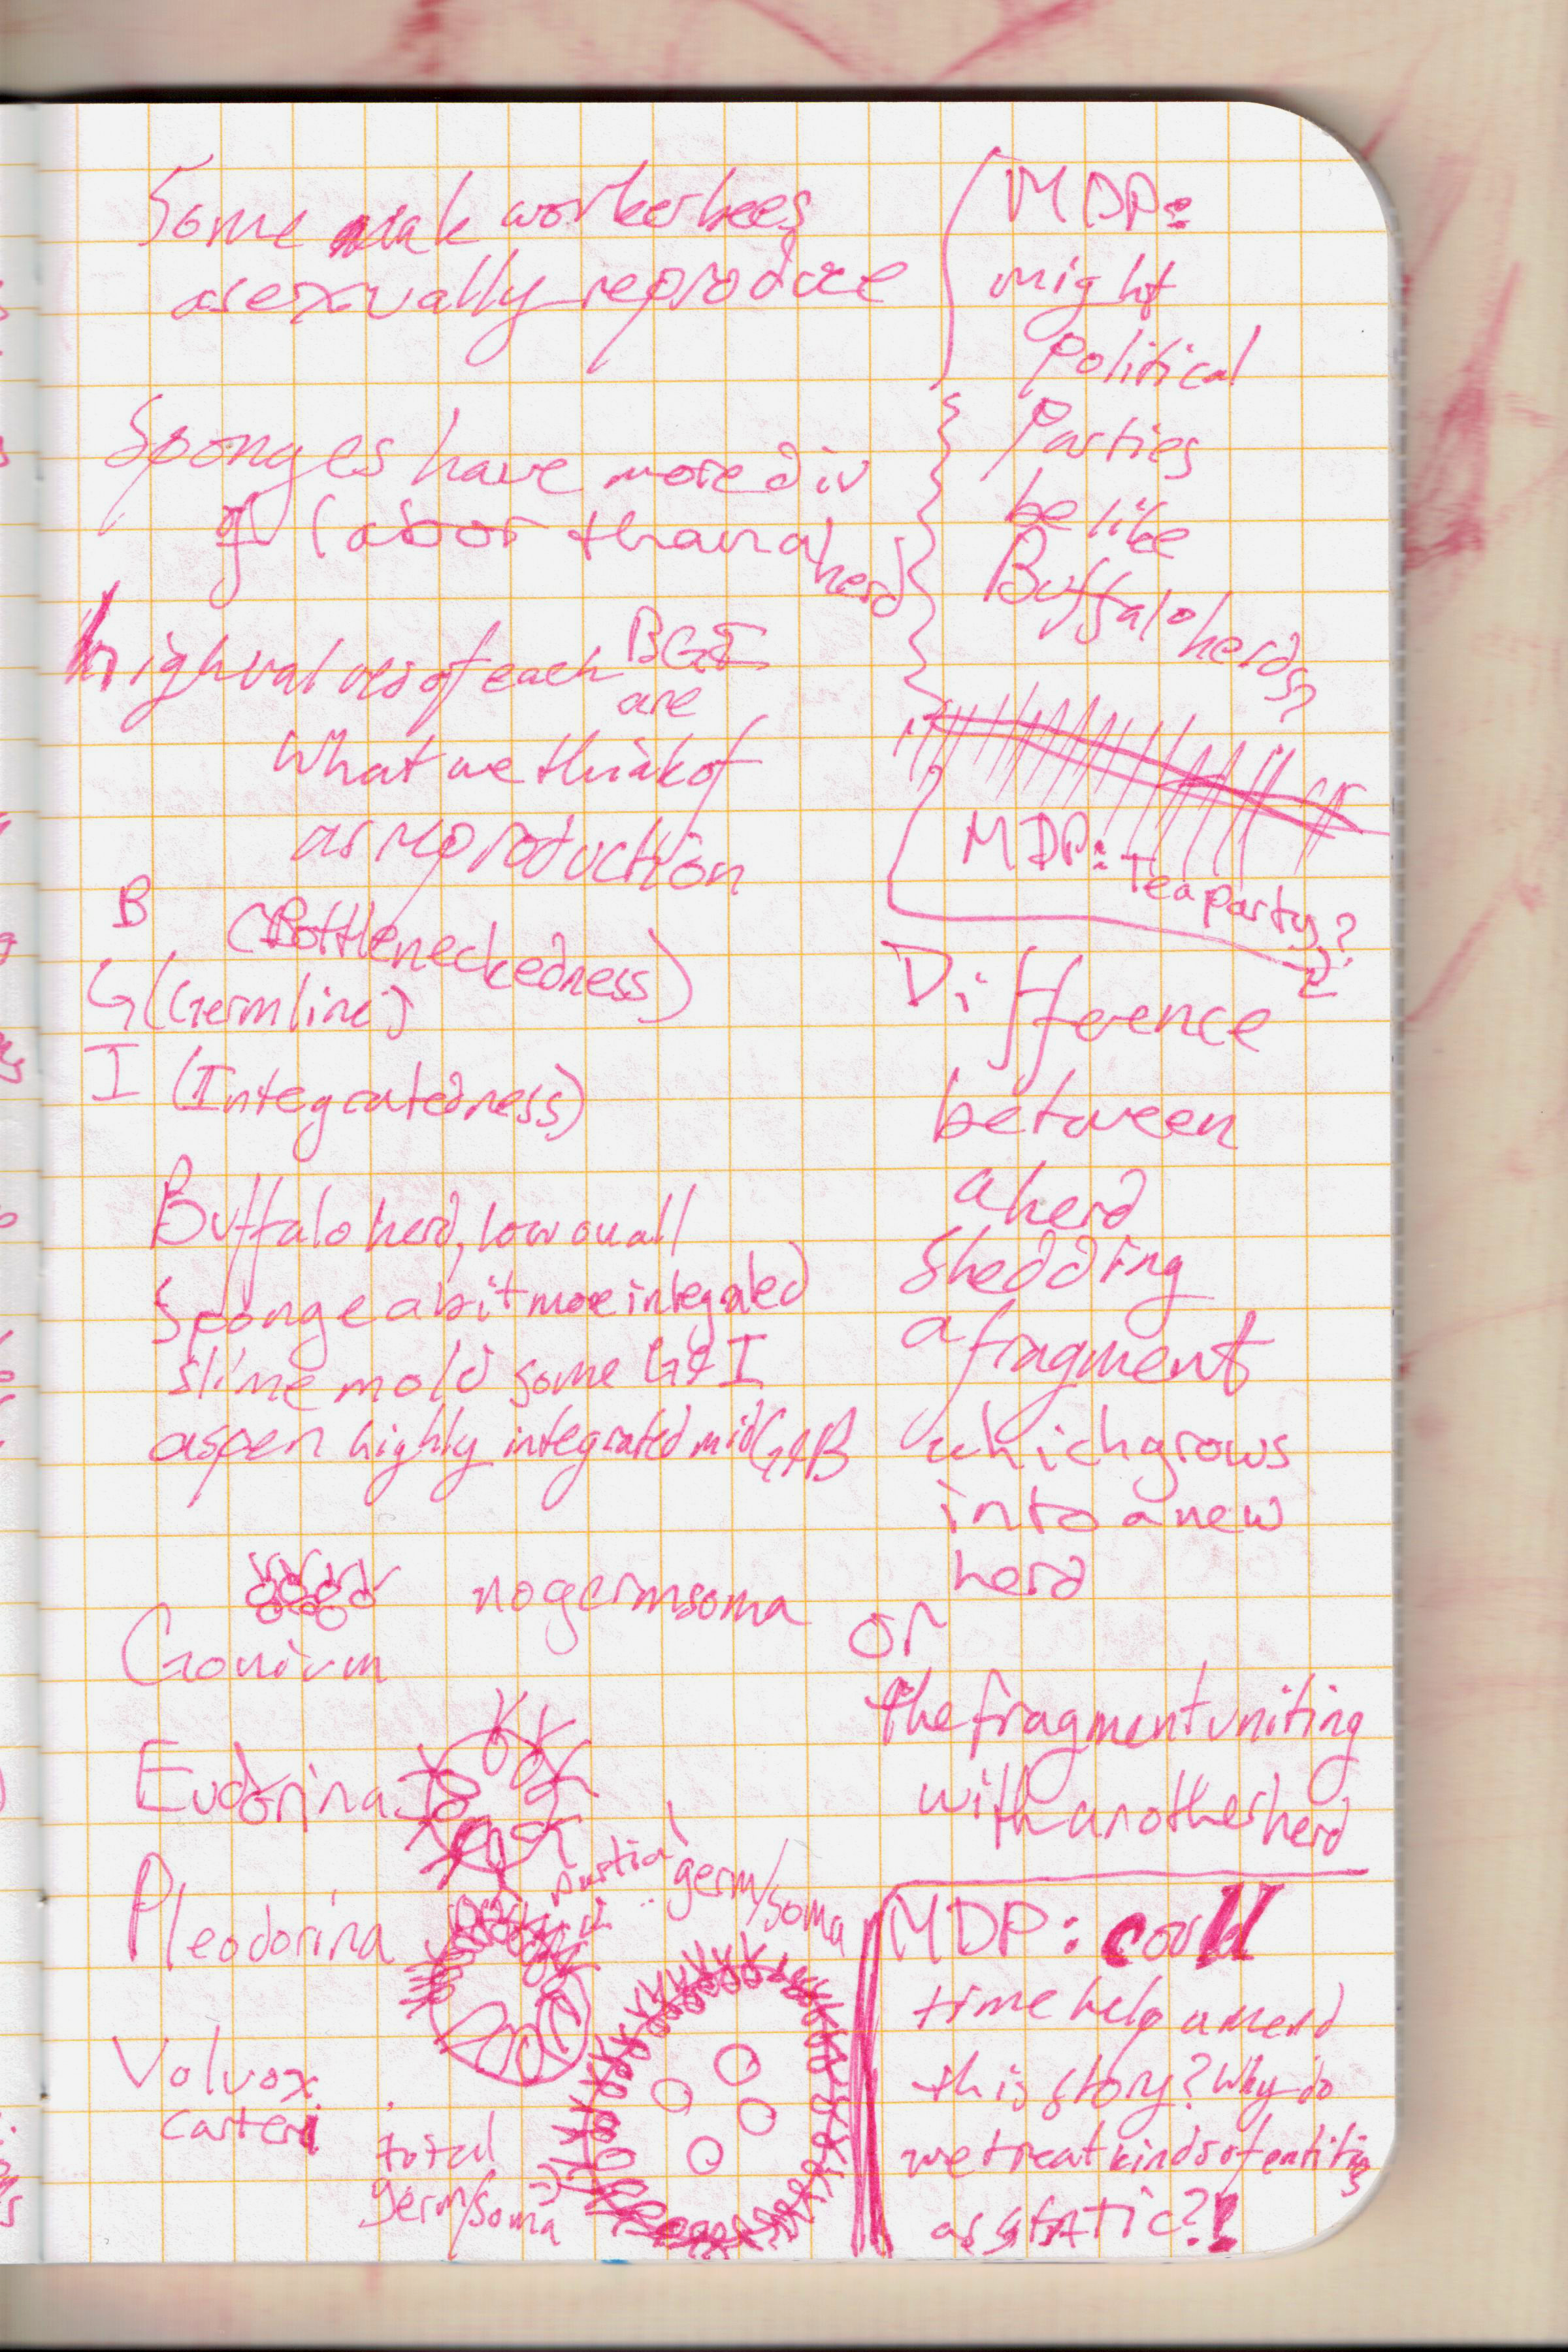 Some workerbees
asexually reproduce
Sponges have more div
of labor than a herd
high values of each BGI
are
what we think of
as reproduction
B (Bottleneckedness)
G (Germline)
I (Integratedness)
Buffalo herd, low on all
Sponge a bit more integrated
slime mold some G & I
aspen highly integrated mid G & B
no germsoma
Gonium
Eudorina
partial germ/soma
Pleodorina
Volvox
carteri
total
germ/soma
MDP:
might
Political
Parties
be like
Buffalo herds?
MDP: Tea party?
Difference
between
a herd
shedding
a fragment
which grows
into a new
herd
or
the fragment uniting
with another herd
MDP: could
time help amend
this story? Why do
we treat kinds of entities
as static?!